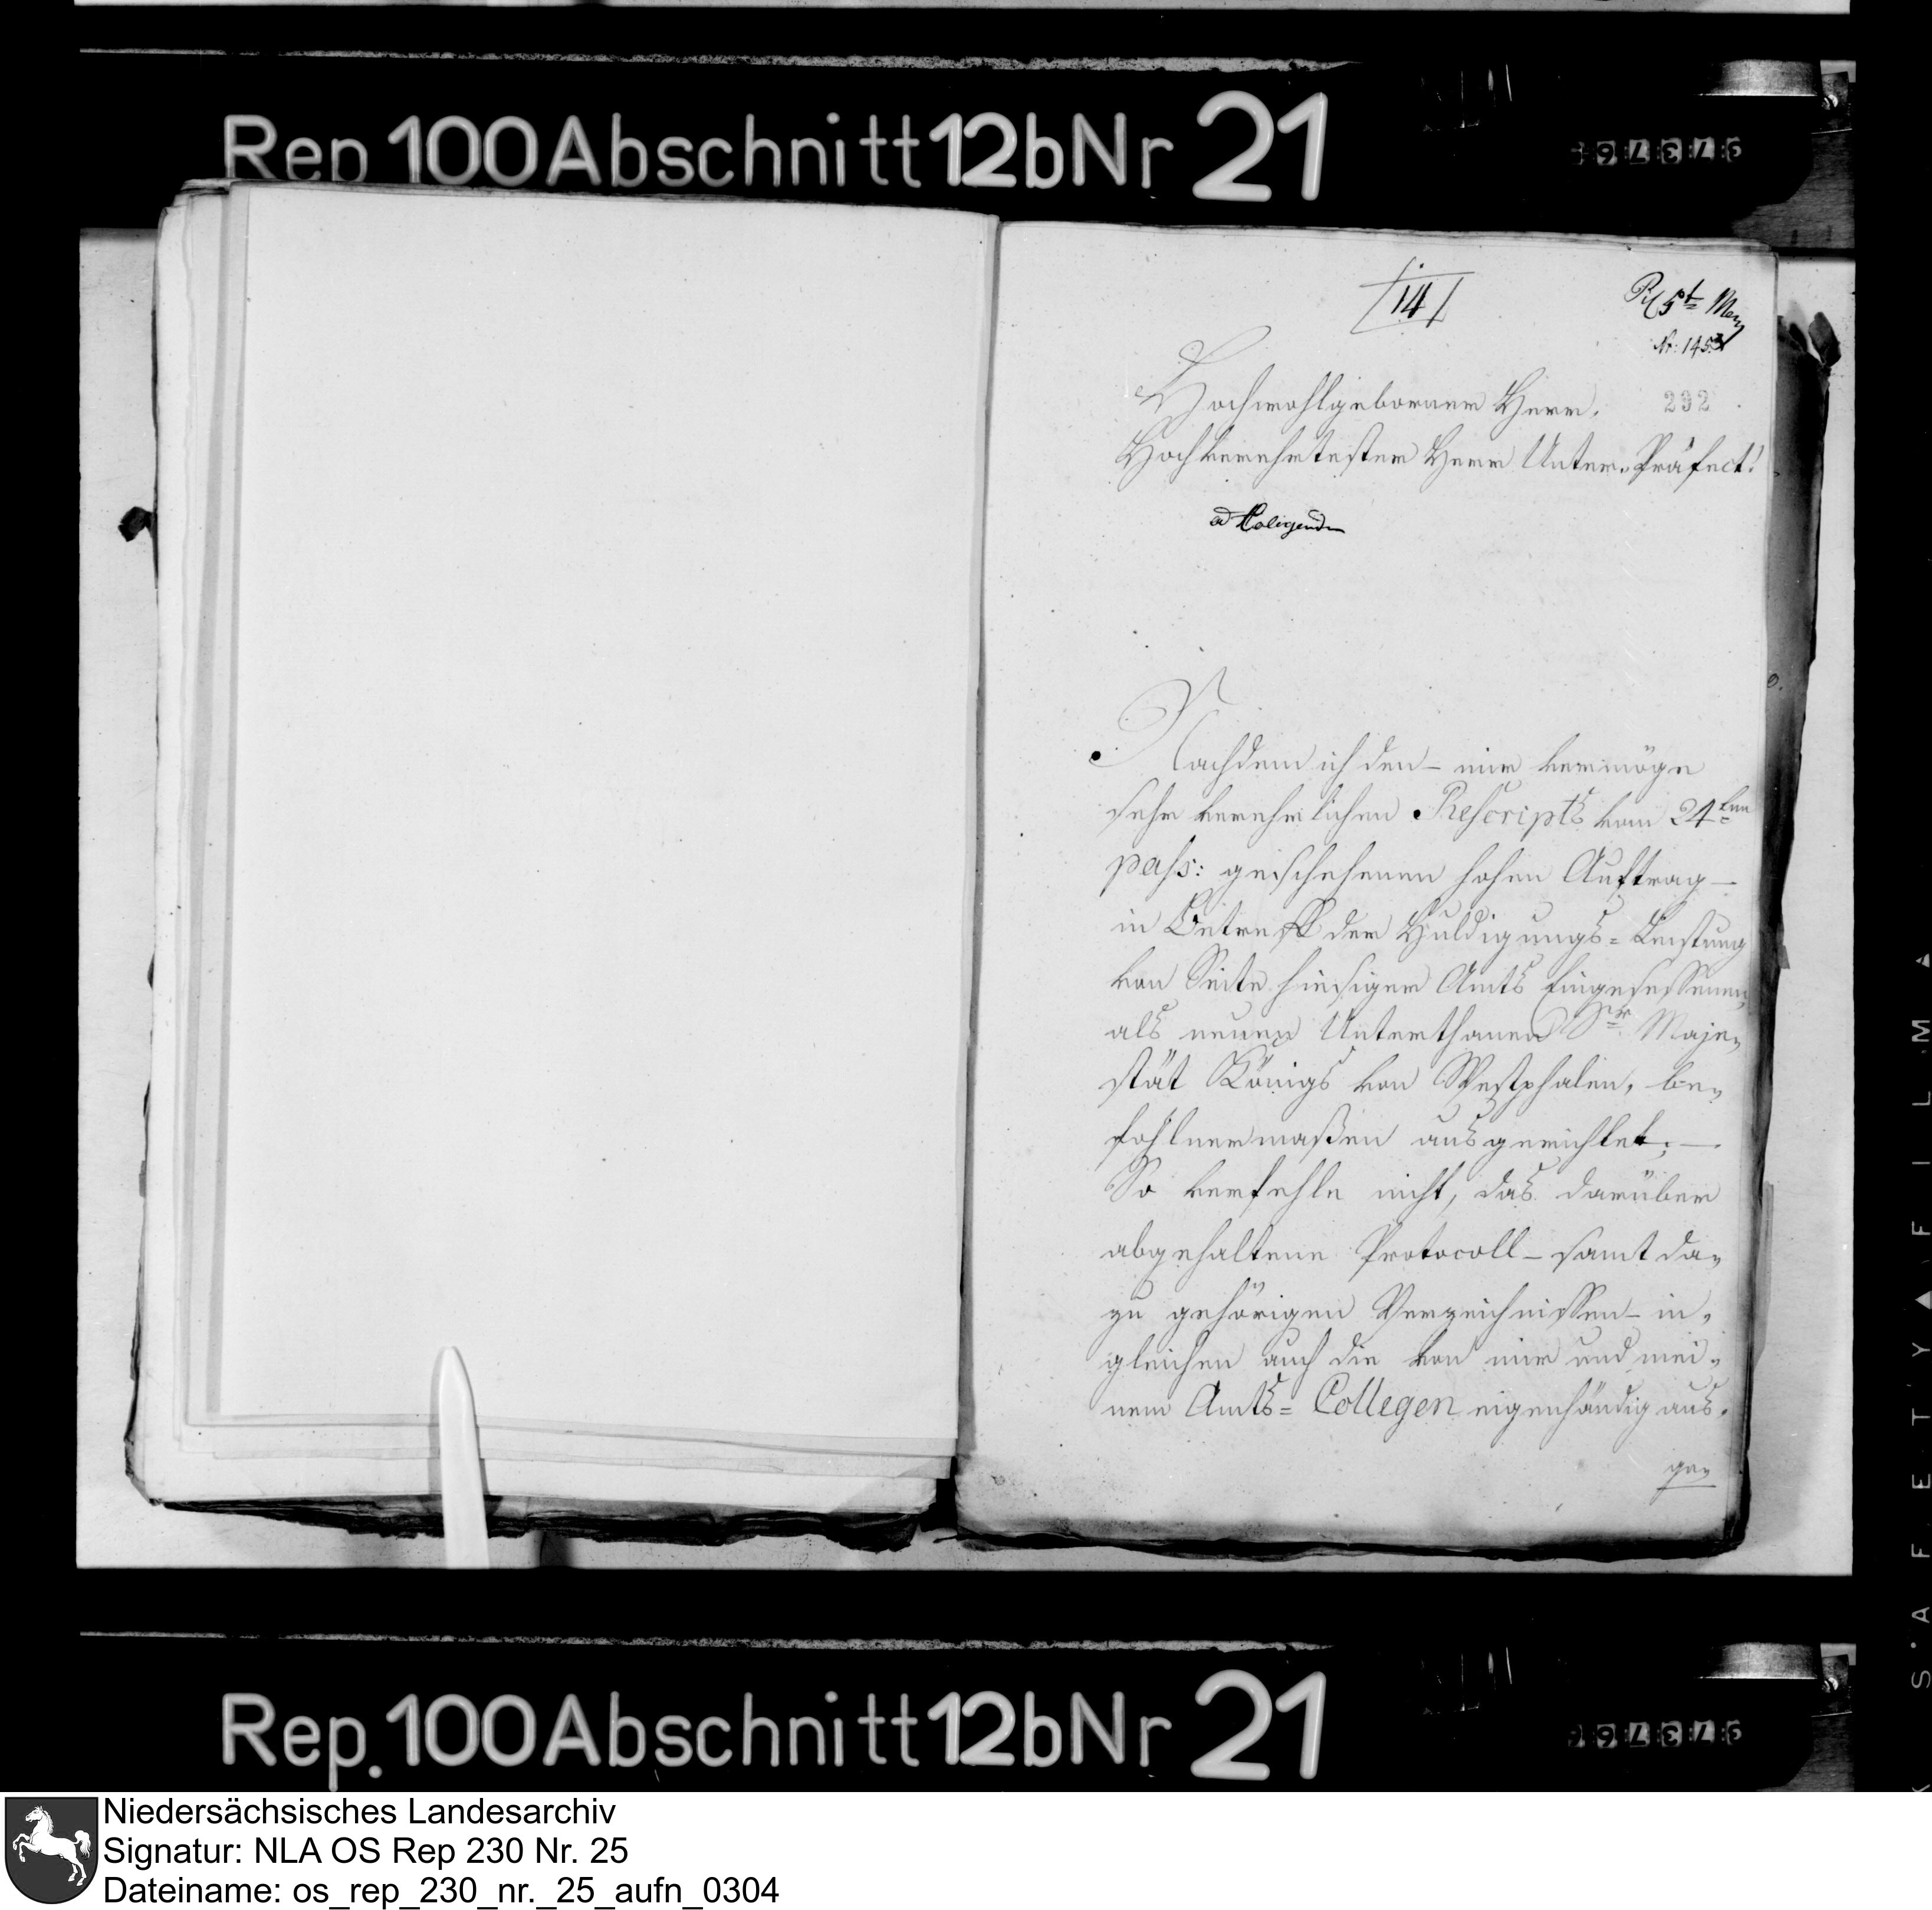 Rep 100 Abschnitt 12b Nr 21
14
5t May
Nr: 1453
Hochwohlgeborner Herr,
292
Hochverehrtester Herr Unter-Präfect!
ad
Nachdem ich den – mir vermöge
sehr verehrlichen Rescripts vom 24ten
pass: geschehenen hohen Auftrag –
in Betreff der Huldigungs-Leistung
von Seite hiesiger Amts Eingesessenen,
als neuen Unterthanen Sr Maje-
stät Königs von Westphalen, be-
fohlnermaßen ausgerichtet; –
So verfehle nicht, das darüber
abgehaltene Protocoll – samt da-
zu gehörigen Verzeichnissen – in-
gleichen auch die von mir und mei-
nem Amts-Collegen eigenhändig aus-
ge-
Rep. 100 Abschnitt 12b Nr 21
SAFETY FILM
Niedersächsisches Landesarchiv
Signatur: NLA OS Rep 230 Nr. 25
Dateiname: os_rep_230_nr._25_aufn_0304